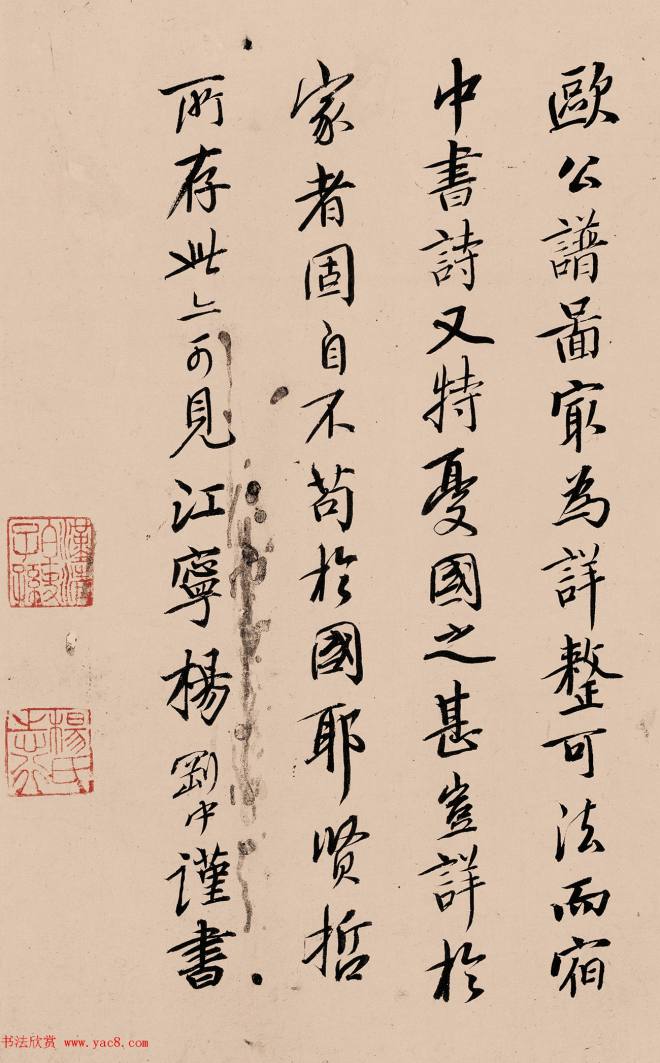 歐公譜啚冣為詳整可法而宿
中書詩又特憂國之甚豈詳於
家者固自不苟於國耶賢哲
所存此亦可見江寧楊剛中謹書
楊氏志行
书法欣赏 www.yac8.com